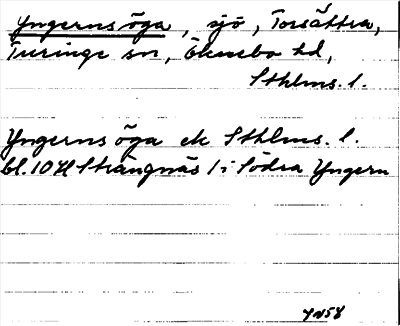 Yngerns öga, sjö, Torsättra,
Turinge sn, Öknebo hd,
Sthlms. l.
Yngerns öga ek Sthlms. l.
bl. 10 H Strängnäs / i Södra Yngern